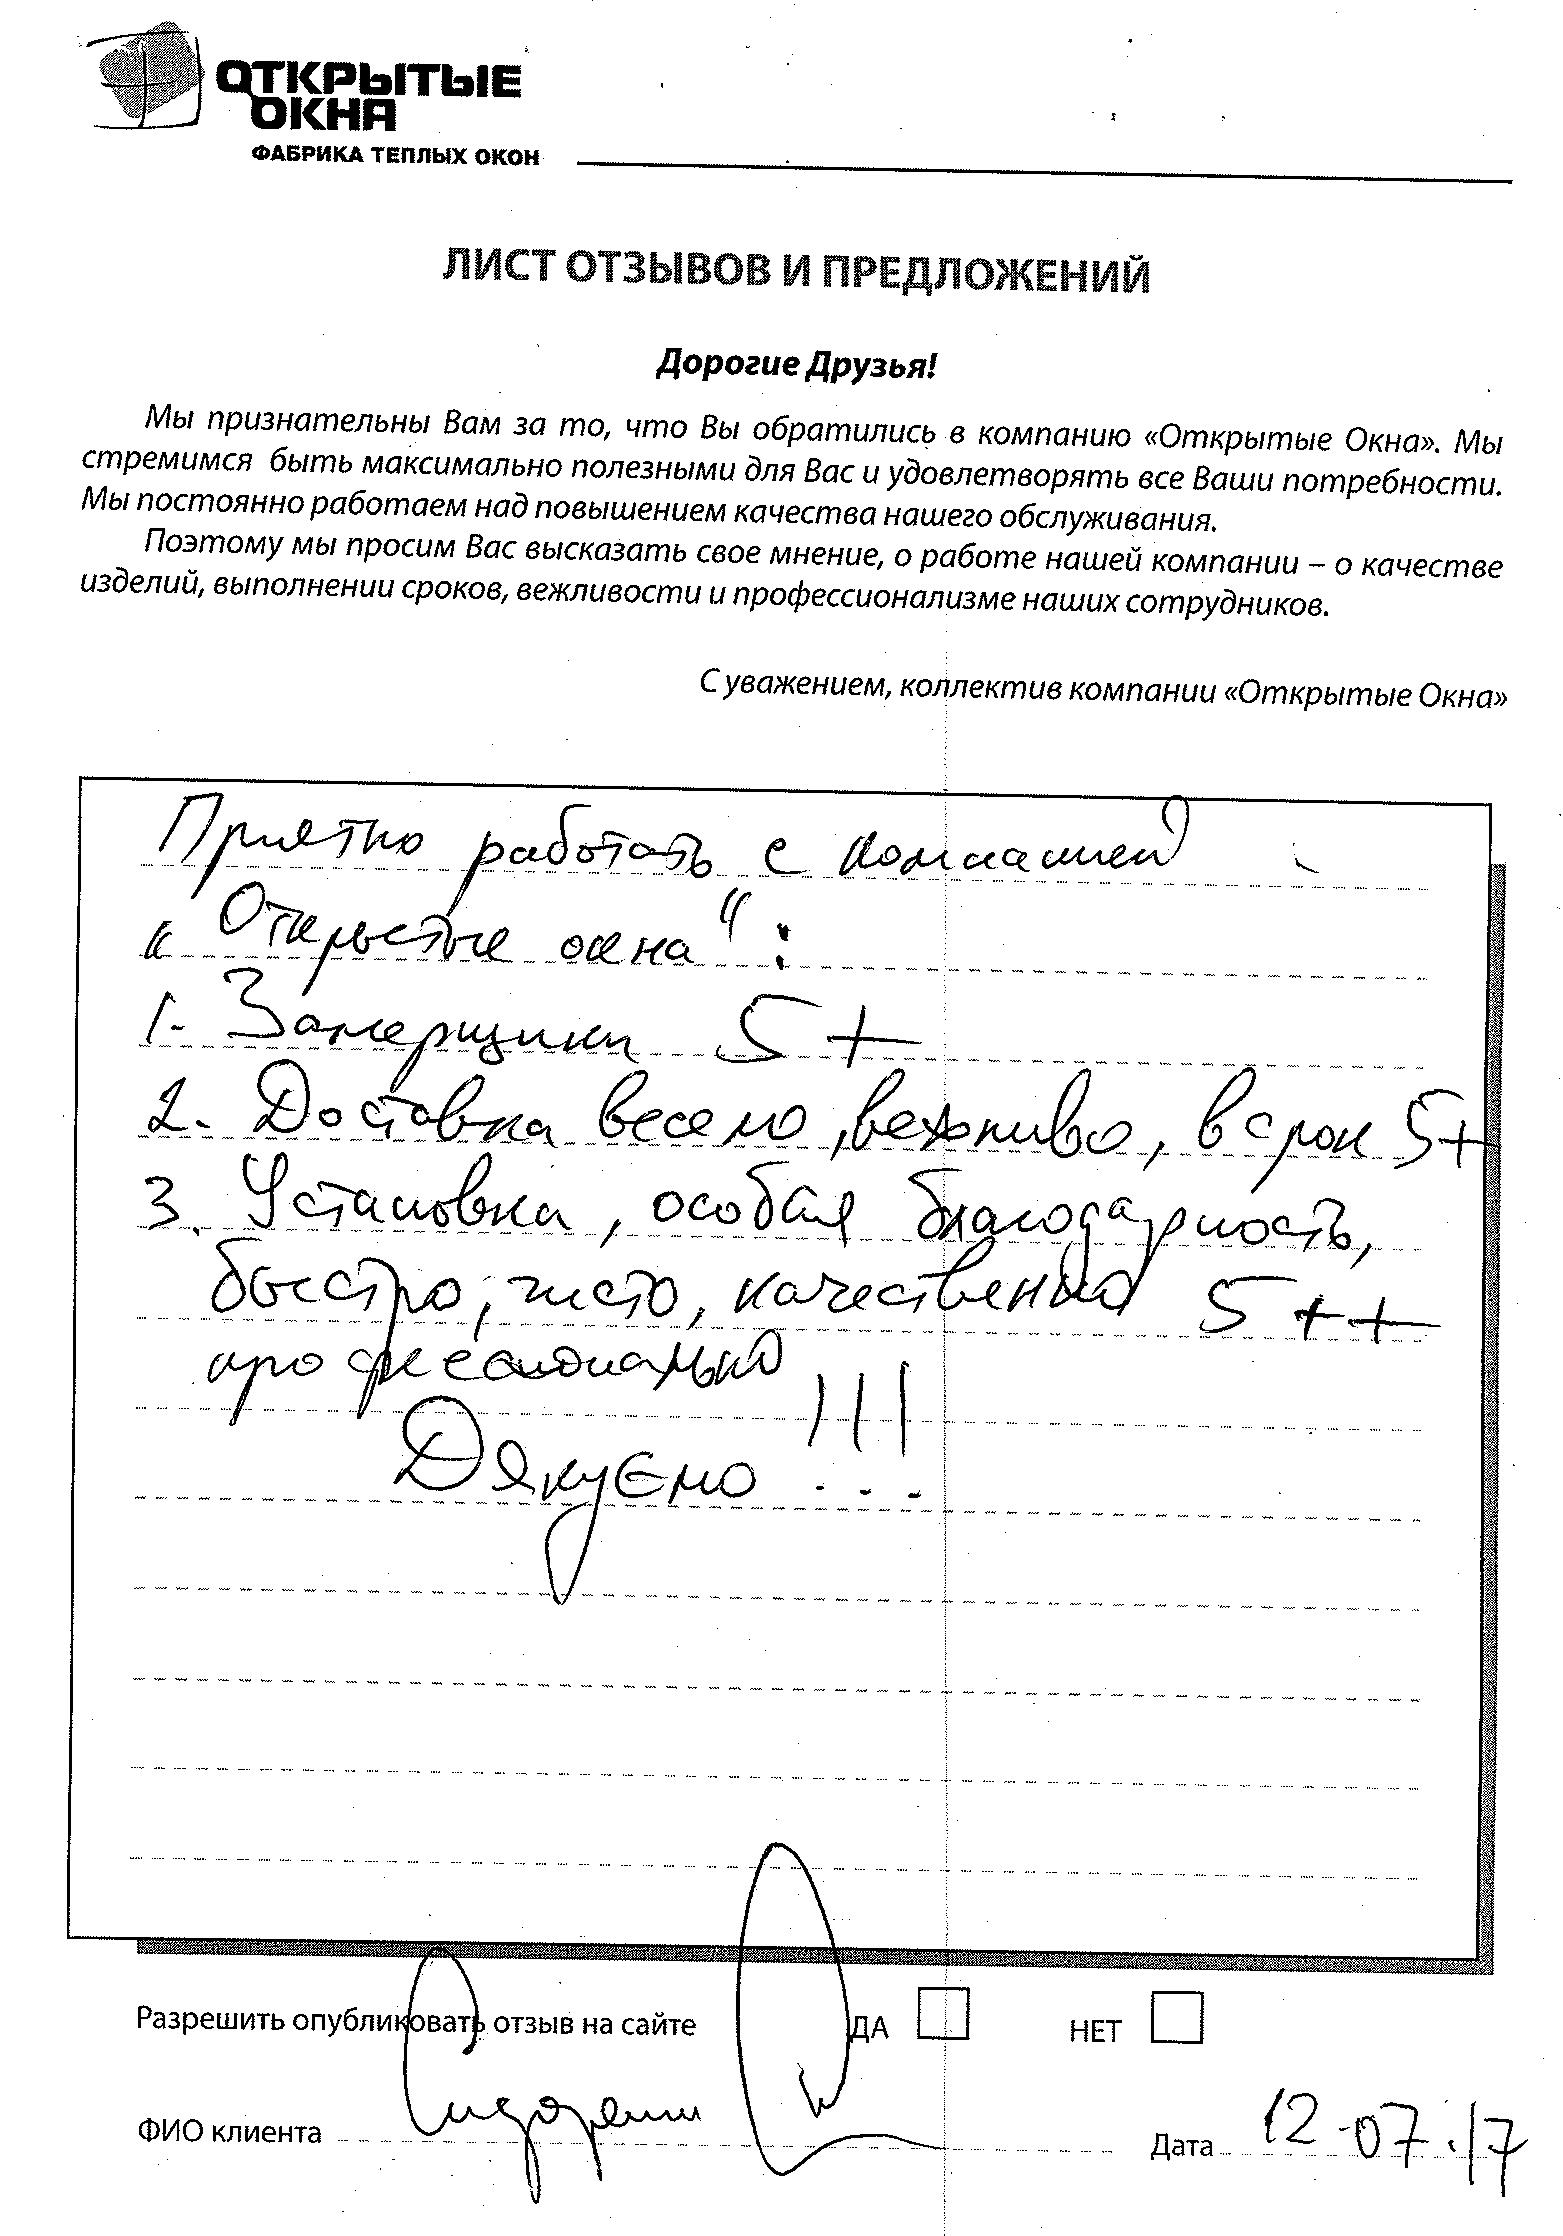 ОТКРЫТЫЕ
ОКНА
ФАБРИКА ТЕПЛЫХ ОКОН
ЛИСТ ОТЗЫВОВ И ПРЕДЛОЖЕНИЙ
Дорогие Друзья!
Мы признательны Вам за то, что Вы обратились в компанию «Открытые Окна». Мы
стремимся быть максимально полезными для Вас и удовлетворять все Ваши потребности.
Мы постоянно работаем над повышением качества нашего обслуживания.
Поэтому мы просим Вас высказать свое мнение, о работе нашей компании – о качестве
изделий, выполнении сроков, вежливости и профессионализме наших сотрудников.
С уважением, коллектив компании «Открытые Окна»
Приятно работать с компанией
„Открытые окна":
1. Замерщики 5+
2. Доставка весело, вежливо, в срок 5+
3. Установка, особая благодарность,
быстро, чисто, качественно 5++
професионально
Дякуємо !!!
Разрешить опубликовать отзыв на сайте ДА НЕТ
ФИО клиента Дата 12.07.17